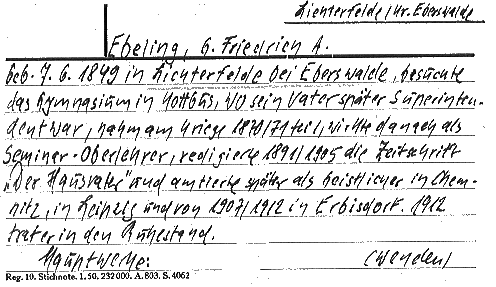 Lichterfelde/Kr. Eberswalde
Ebeling, G. Friedrich A.
Geb. 7. 6. 1849 in Lichterfelde bei Eberswalde, besuchte
das Gymnasium in Kottbus, wo sein Vater später Superinten-
dent war, nahm am Kriege 1870/71 teil, wirkte danach als
Seminar-Oberlehrer, redigierte 1891/1905 die Zeitschrift
„Der Hausvater" und amtierte später als Geistlicher in Chem-
nitz, in Leipzig und von 1907/1912 in Erbisdorf. 1912
trat er in den Ruhestand.
Hauptwerke: (wenden)
Reg. 19. Stichnote. 1, 50, 232 000. A. 803. S. 4062